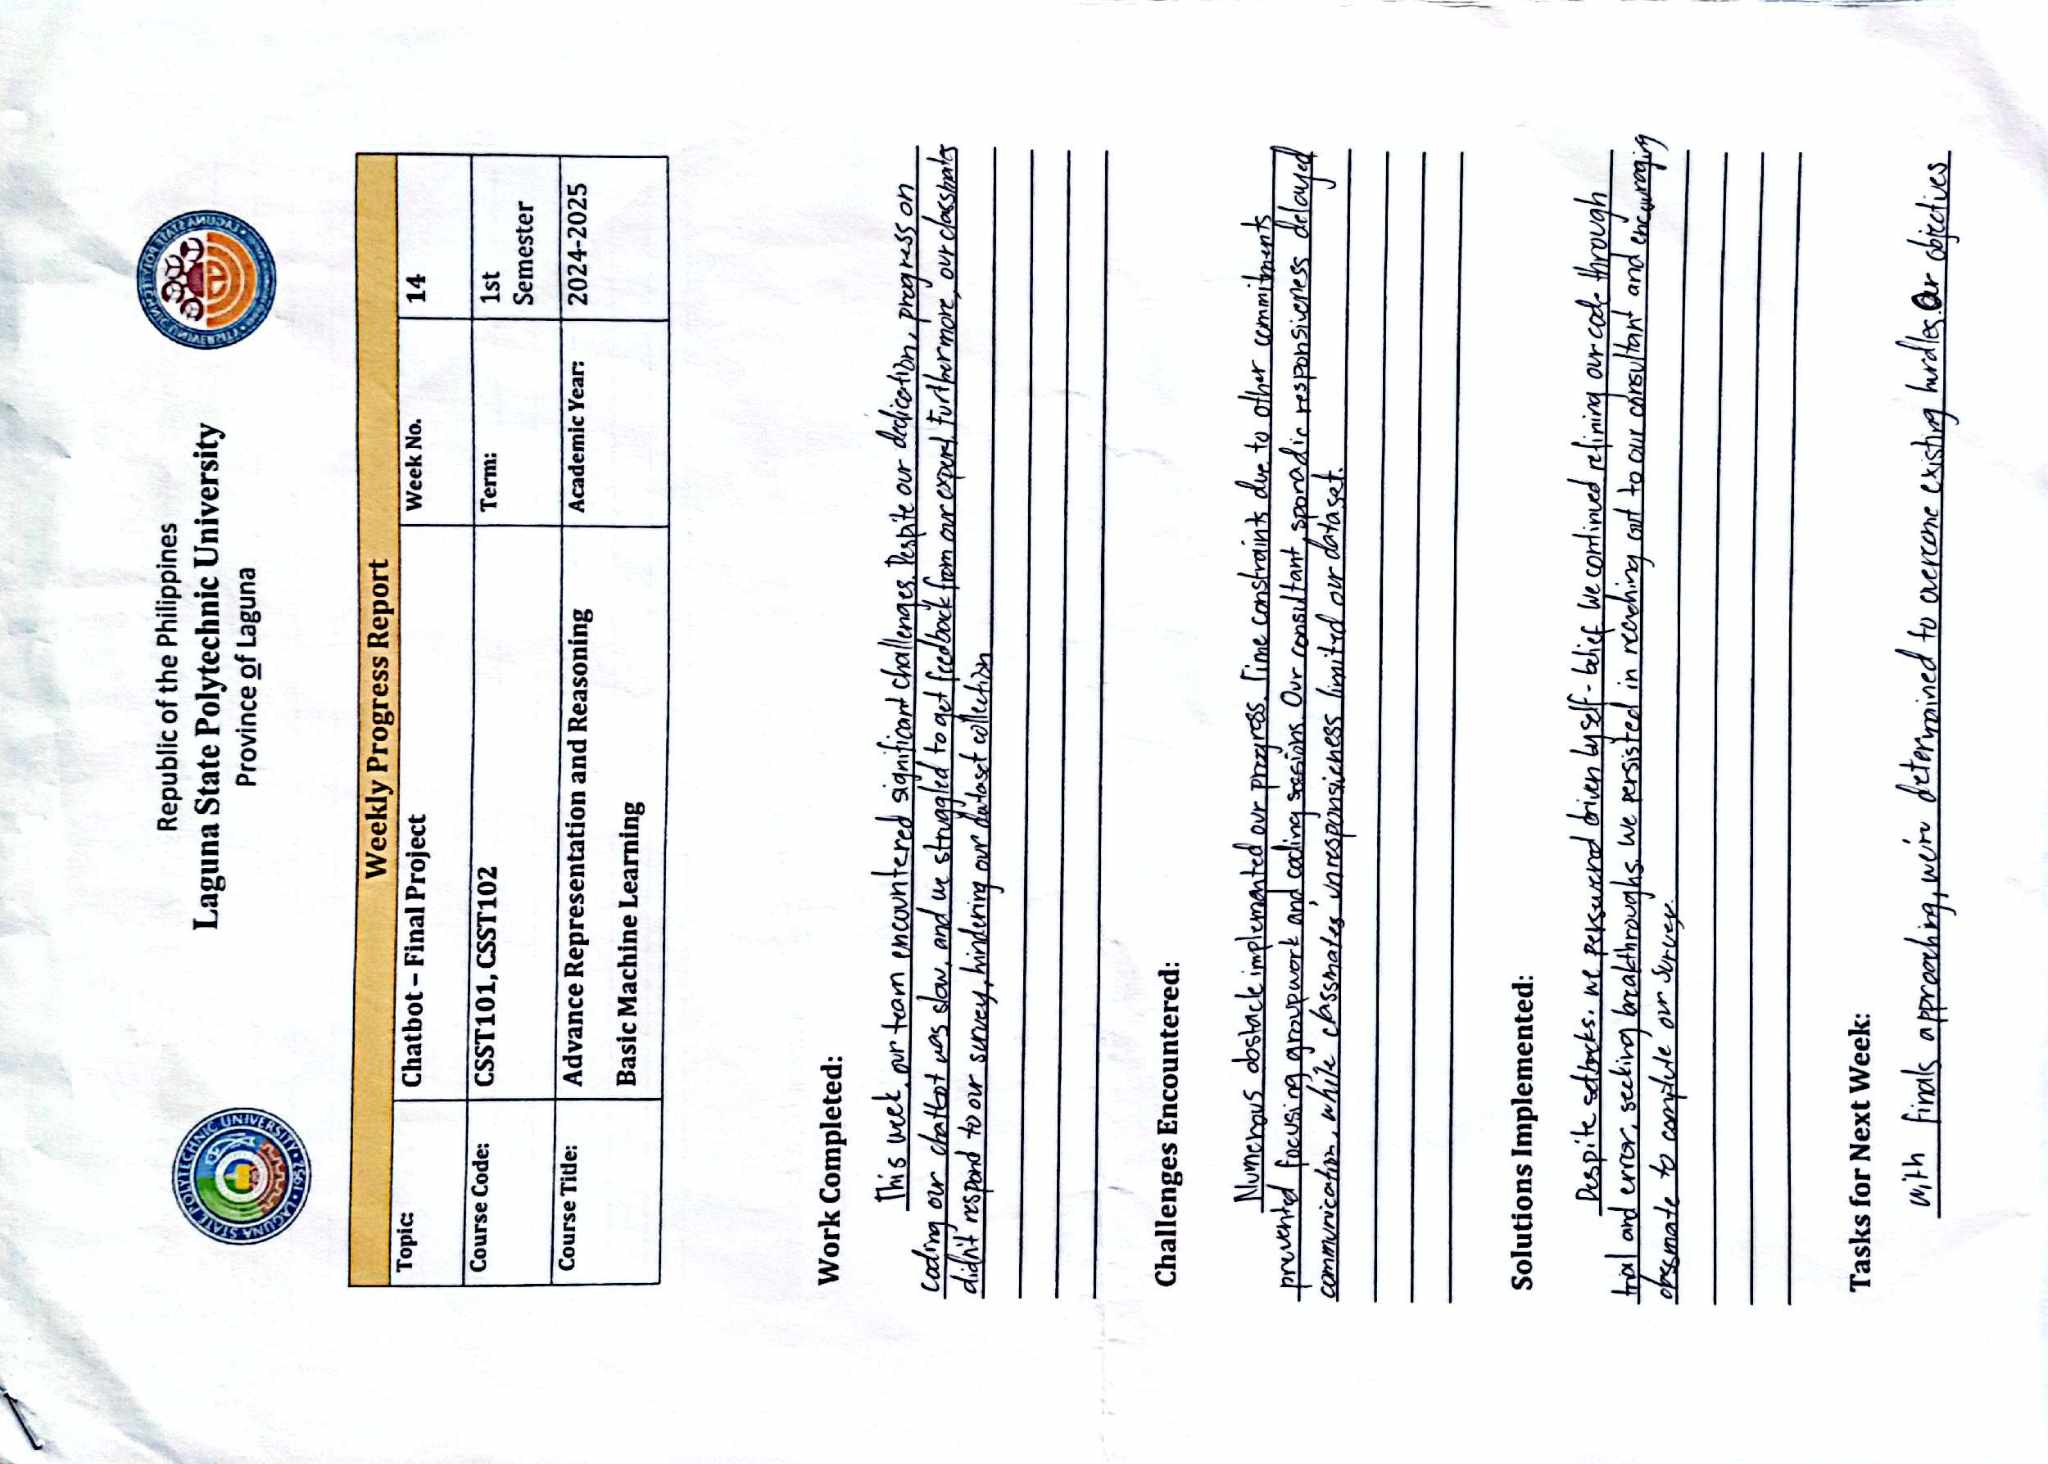 Republic of the Philippines
Laguna State Polytechnic University
Province of Laguna
LAGUNA STATE POLYTECHNIC UNIVERSITY • 1952
Weekly Progress Report
Topic: Chatbot – Final Project Week No. 14
Course Code: CSST101, CSST102 Term: 1st
Semester
Course Title: Advance Representation and Reasoning Academic Year: 2024-2025
Basic Machine Learning
Work Completed:
This week, our team encountered significant challenges. Despite our dedication, progress on
coding our chatbot was slow, and we struggled to get feedback from our expert. Furthermore, our classmates
didn't respond to our survey, hindering our dataset collection
Challenges Encountered:
Numerous obstacle implemented our progress. Time constraints due to other commitments
prevented focusing groupwork and coding sessions. Our consultant sporadic responsiveness delayed
communication, while classmates' unresponsiveness limited our dataset.
Solutions Implemented:
Despite setbacks, we persevered driven by self-belief. We continued refining our code through
trial and error, seeking breakthroughs. We persisted in reaching out to our consultant and encouraging
to complete our survey.
Tasks for Next Week:
With finals approaching, we're determined to overcome existing hurdles. Our objectives